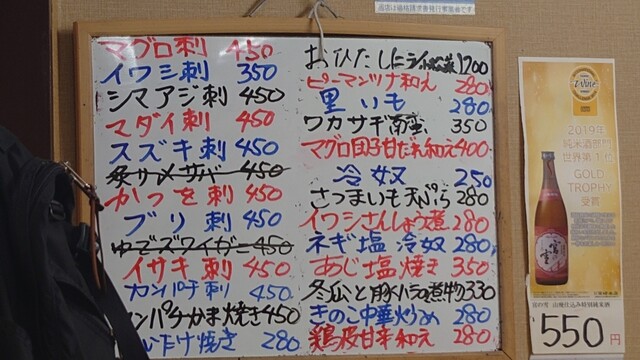 マグロ刺 450
イワシ刺 350
シマアジ刺 450
マダイ刺 450
スズキ刺 450
炙サメサバー 450
かつを刺 450
ブリ刺 450
ゆでズワイガニ 450
イサキ刺 450
カンパチ刺 450
ンパチかま焼き 450
たけ焼き 280
おひたし 1200
ピーマンツナ和え 280
里いも 280
ワカサギ南蛮 350
マグロ団子甘だれ和え 400
冷奴 250
さつまいも天ぷら 280
イワシさんしょう煮 280
ネギ塩冷奴 280
あじ塩焼き 350
冬瓜と豚バラの煮物 330
きのこ中華炒め 280
鶏皮甘辛和え 280
2019年
純米酒部門
世界第1位
GOLD
TROPHY
受賞
宮の雪
宮の雪 山廃仕込み特別純米酒
550円